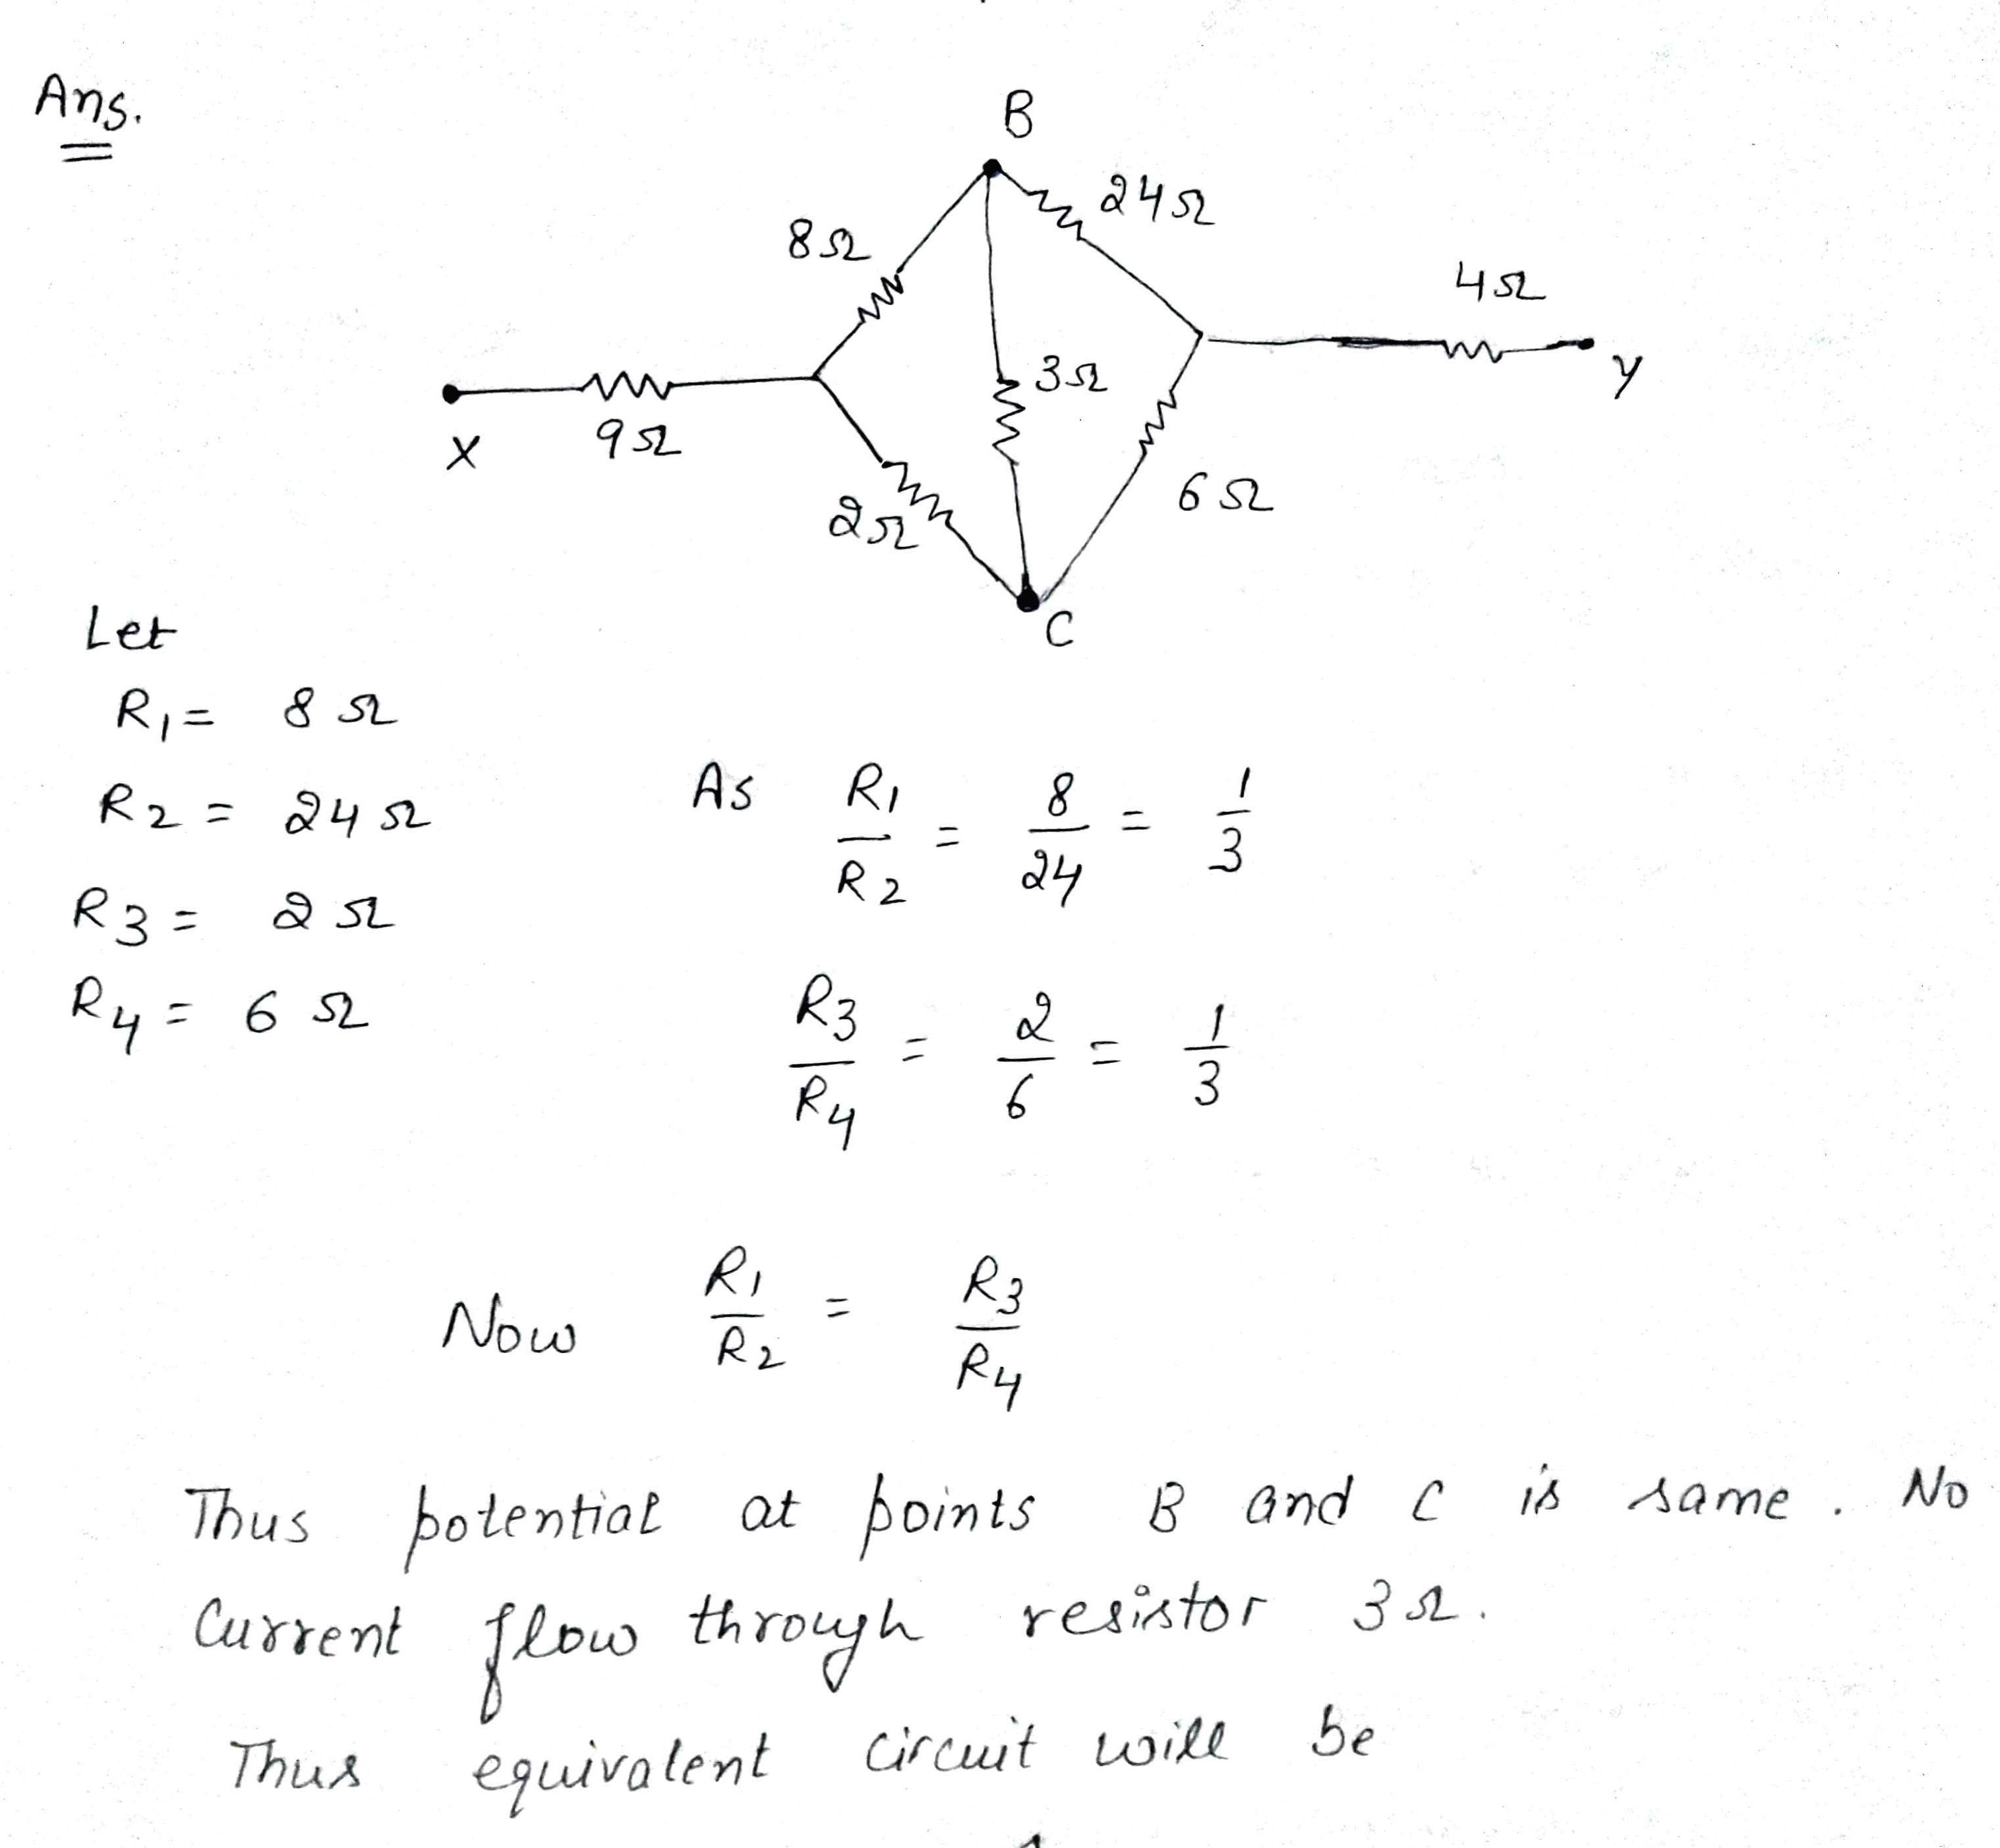 Ans.
B
24Ω
8Ω
4Ω
3Ω
y
9Ω
X
6Ω
2Ω
C
Let
R1 = 8 Ω
R2 = 24 Ω
As R1/R2 = 8/24 = 1/3
R3 = 2 Ω
R4 = 6 Ω
R3/R4 = 2/6 = 1/3
Now R1/R2 = R3/R4
Thus potential at points B and C is same. No
Current flow through resistor 3Ω.
Thus equivalent circuit will be